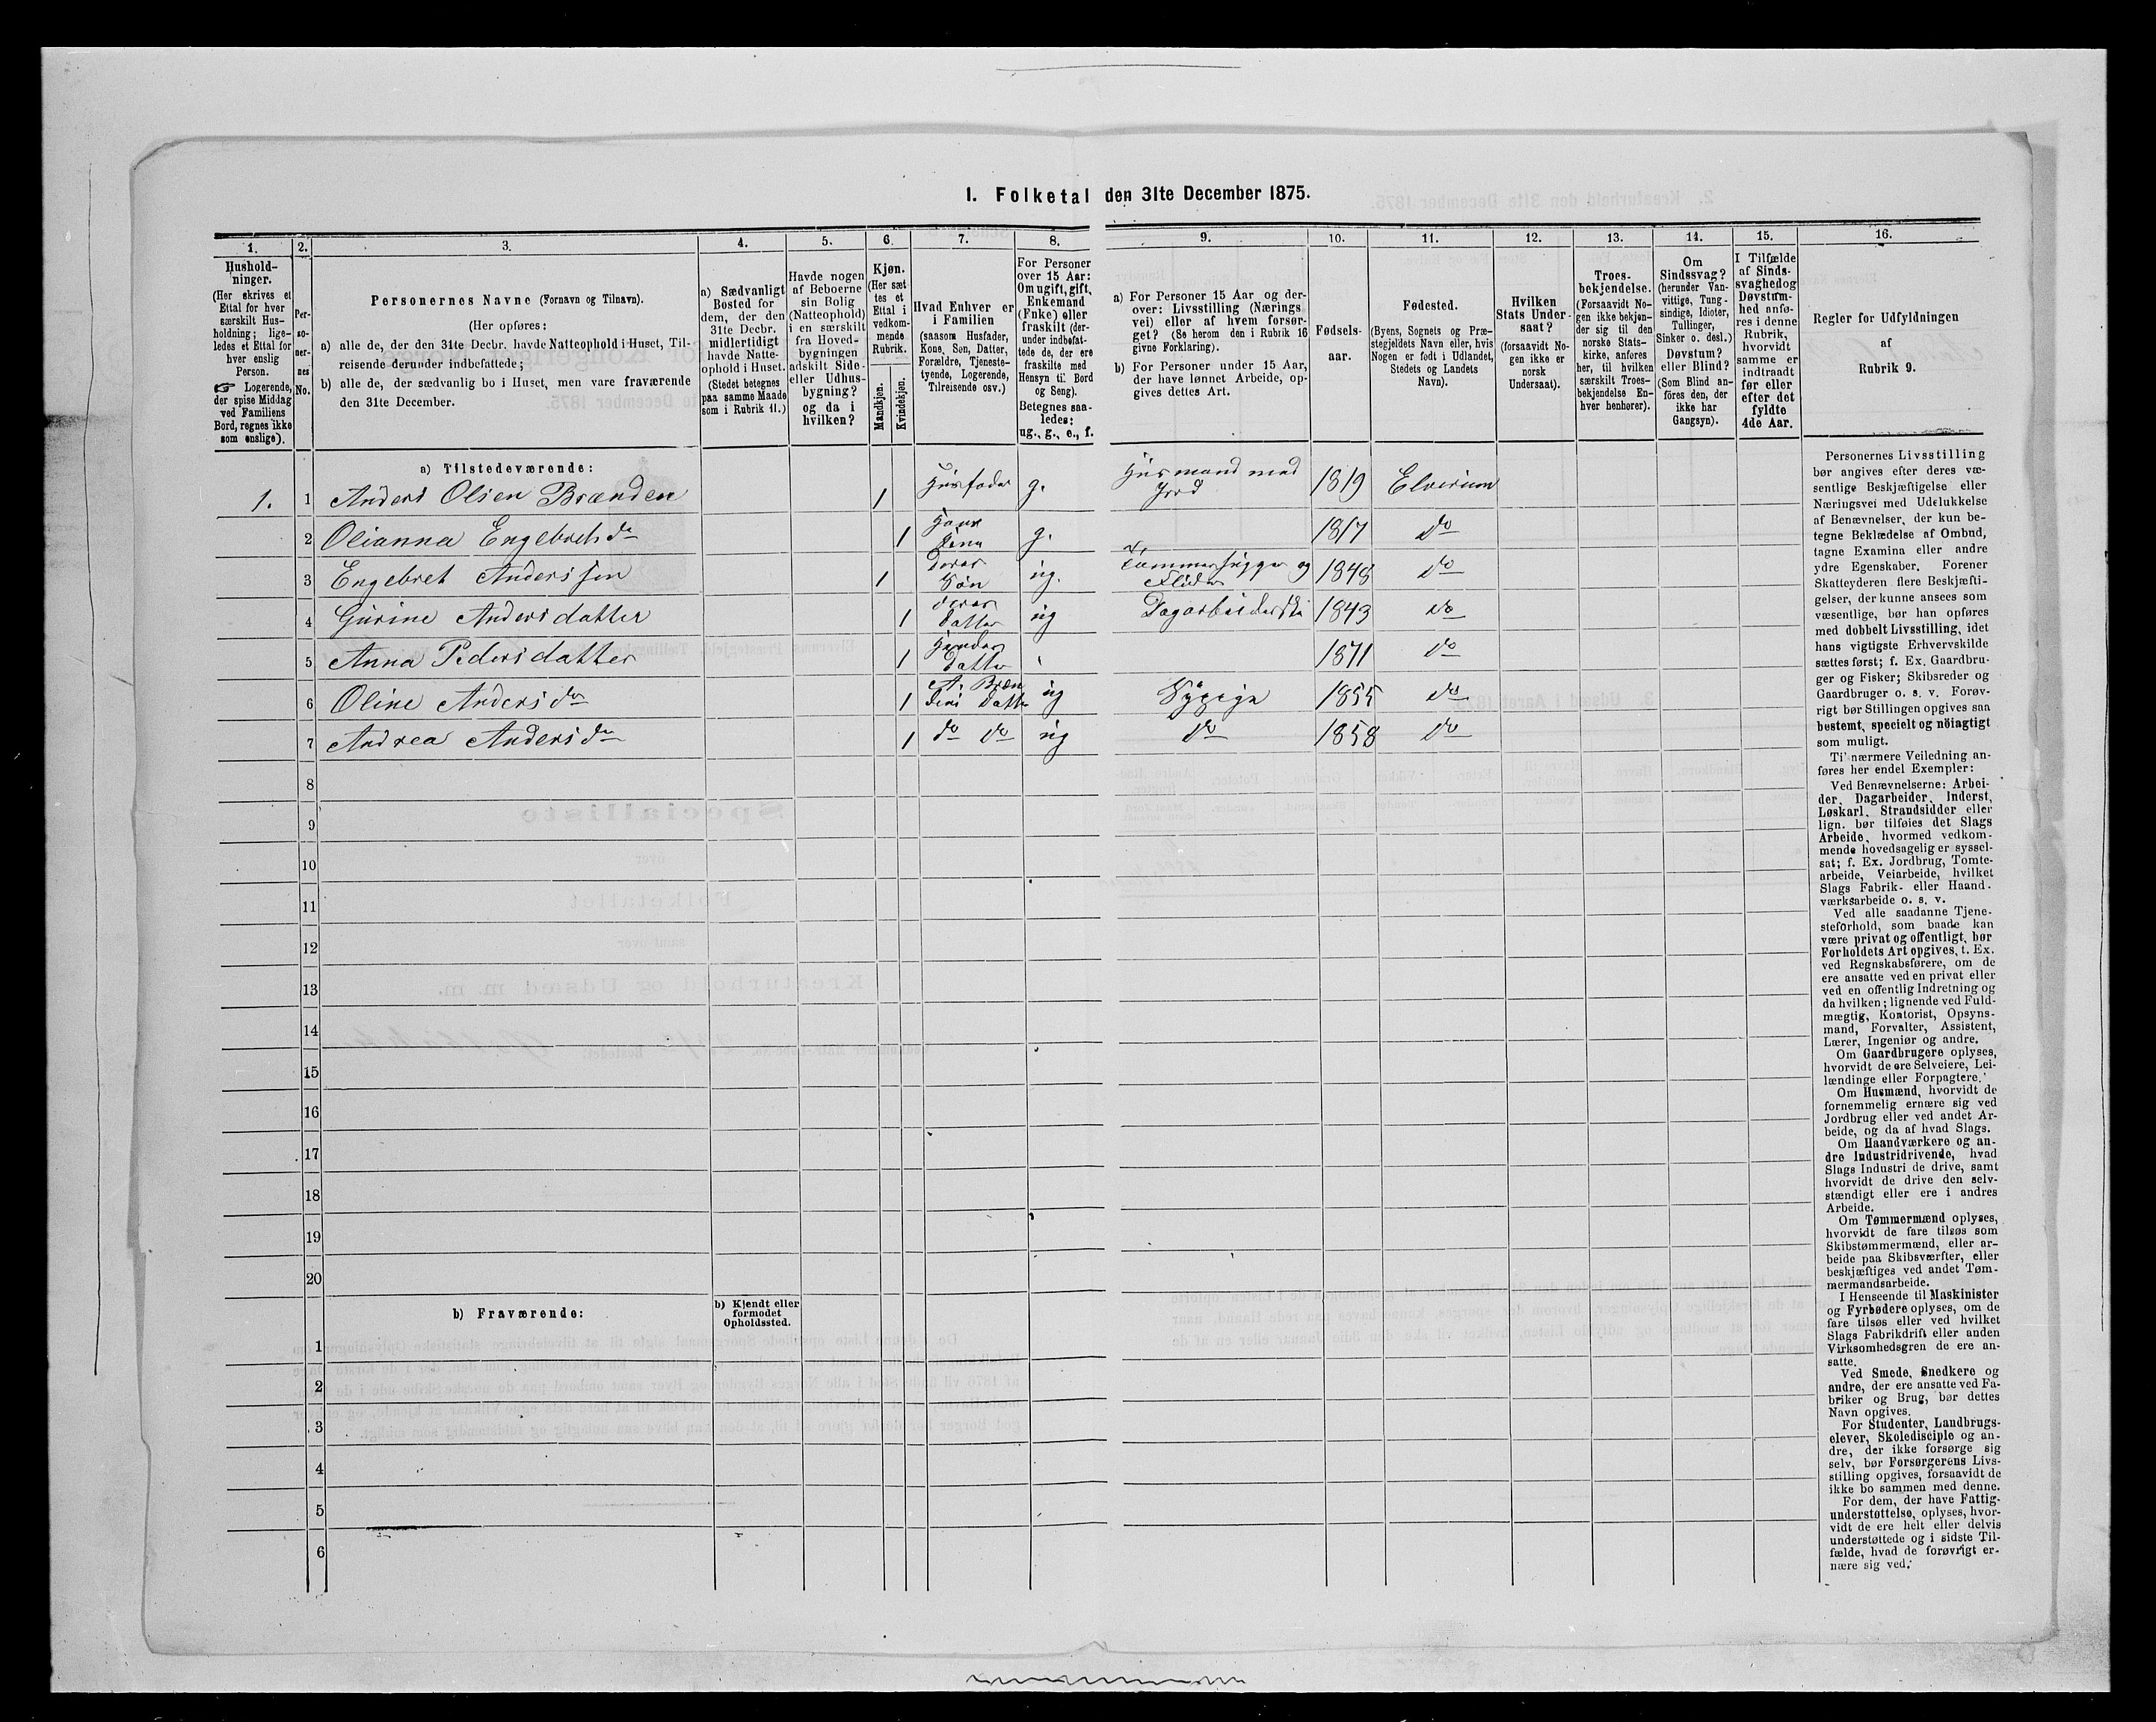 1. Folketal den 31te December 1875.
1. 2. 3. 4. 5. 6. 7. 8. 9. 10. 11. 12. 13. 14. 15. 16.
Hushold-
ninger.
(Her skrives et
Ettal for hver
særskilt Hus-
holdning; lige-
ledes et Ettal for
hver enslig
Person.
☞ Logerende,
der spise Middag
ved Familiens
Bord, regnes ikke
som enslige).
Per-
so-
ner-
nes
No.
Personernes Navne (Fornavn og Tilnavn).
(Her opføres:
a) alle de, der den 31te Decbr. havde Natteophold i Huset, Til-
reisende derunder indbefattede;
b) alle de, der sædvanlig bo i Huset, men vare fraværende
den 31te December.
a) Sædvanligt
Bosted for
dem, der den
31te Decbr.
midlertidigt
havde Natte-
ophold i Huset.
(Stedet betegnes
paa samme Maade
som i Rubrik 11.)
Havde nogen
af Beboerne
sin Bolig
(Natteophold)
i en særskilt
fra Hoved-
bygningen
adskilt Side-
eller Udhus-
bygning?
og da i
hvilken?
Kjøn.
(Her sæt-
tes et
Ettal i
vedkom-
mende
Rubrik.
Mandkjøn.
Kvindekjøn.
Hvad Enhver er
i Familien
(saasom Husfader,
Kone, Søn, Datter,
Forældre, Tjeneste-
tyende, Logerende,
Tilreisende osv.)
For Personer
over 15 Aar:
Om ugift, gift,
Enkemand
(Enke) eller
fraskilt (der-
under indbefat-
tede de, der ere
fraskilte med
Hensyn til Bord
og Seng).
Betegnes saa-
ledes:
ug., g., e., f.
a) For Personer 15 Aar og der-
over: Livsstilling (Nærings-
vei) eller af hvem forsør-
get? (Se herom den i Rubrik 16
givne Forklaring).
b) For Personer under 15 Aar,
der have lønnet Arbeide, op-
gives dettes Art.
Fødsels-
aar.
Fødested.
(Byens, Sognets og Præ-
stegjeldets Navn eller, hvis
Nogen er født i Udlandet,
Stedets og Landets
Navn).
Hvilken
Stats Under-
saat?
(forsaavidt No-
gen ikke er
norsk
Undersaat).
Troes-
bekjendelse.
(Forsaavidt No-
gen ikke bekjen-
der sig til den
norske Stats-
kirke, anføres
her, til hvilken
særskilt Troes-
bekjendelse En-
hver henhører).
Om
Sindssvag?
(herunder Van-
vittige, Tung-
sindige, Idioter,
Tullinger,
Sinker o. desl.)
Døvstum?
eller Blind?
(Som Blind an-
føres den, der
ikke har
Gangsyn).
I Tilfælde
af Sinds-
svaghed og
Døvstum-
hed anfø-
res i denne
Rubrik,
hvorvidt
samme er
indtraadt
før eller
efter det
fyldte
4de Aar.
Regler for Udfyldningen
af
Rubrik 9.
a) Tilstedeværende:
1. 1 Anders Olsen Brænden 1 Husfader g. Husmand med Jord 1819 Elverum
2 Olianna Engebretsdr 1 Hans Kone g. 1817 do
3 Engebret Anderssen 1 deres Søn ug. og 1848 do
4 Gurine Andersdatter 1 deres Datter ug 1843 do
5 Anna Pedersdatter 1 Hendes Datter 1871 do
6 Oline Andersdr 1 A. Bræn dens Datter ug Sypige 1855 do
7 Andrea Andersdr 1 do do ug do 1858 do
8
9
10
11
12
13
14
15
16
17
18
19
20
b) Fraværende:
b) Kjendt eller
formodet
Opholdssted.
1
2
3
4
5
6
Personernes Livsstilling
bør angives efter deres væ-
sentlige Beskjæftigelse eller
Næringsvei med Udelukkelse
af Benævnelser, der kun be-
tegne Beklædelse af Ombud,
tagne Examina eller andre
ydre Egenskaber. Forener
Skatteyderen flere Beskjæfti-
gelser, der kunne ansees som
væsentlige, bør han opføres
med dobbelt Livsstilling, idet
hans vigtigste Erhvervskilde
sættes først; f. Ex. Gaardbru-
ger og Fisker; Skibsreder og
Gaardbruger o. s. v. Forøv-
rigt bør Stillingen opgives saa
bestemt, specielt og nöiagtigt
som muligt.
Til nærmere Veiledning an-
føres her endel Exempler:
Ved Benævnelserne: Arbei-
der, Dagarbeider, Inderst,
Løskarl, Strandsidder eller
lign. bør tilføies det Slags
Arbeide, hvormed vedkom-
mende hovedsagelig er syssel-
sat; f. Ex. Jordbrug, Tomte-
arbeide, Veiarbeide, hvilket
Slags Fabrik- eller Haand-
værksarbeide o. s. v.
Ved alle saadanne Tjene-
steforhold, som baade kan
være privat og offentligt, bør
Forholdets Art opgives, t. Ex.
ved Regnskabsførere, om de
ere ansatte ved en privat eller
ved en offentlig Indretning og
da hvilken; lignende ved Fuld-
mægtig, Kontorist, Opsyns-
mand, Forvalter, Assistent,
Lærer, Ingeniør og andre.
Om Gaardbrugere oplyses,
hvorvidt de ere Selveiere, Lei-
lændinge eller Forpagtere.
Om Husmænd, hvorvidt de
fornemmelig ernære sig ved
Jordbrug eller ved andet Ar-
beide, og da af hvad Slags.
Om Haandværkere og an-
dre Industridrivende, hvad
Slags Industri de drive, samt
hvorvidt de drive den selv-
stændigt eller ere i andres
Arbeide.
Om Tømmermænd oplyses,
hvorvidt de fare tilsøs som
Skibstømmermænd, eller ar-
beide paa Skibsværfter, eller
beskjæftiges ved andet Tøm-
mermandsarbeide.
I Henseende til Maskinister
og Fyrbødere oplyses, om de
fare tilsøs eller ved hvilket
Slags Fabrikdrift eller anden
Virksomhedsgren de ere an-
satte.
Ved Smede, Snedkere og
andre, der ere ansatte ved Fa-
briker og Brug, bør dettes
Navn opgives.
For Studenter, Landbrugs-
elever, Skoledisciple og an-
dre, der ikke forsørge sig
selv, bør Forsørgerens Livs-
stilling opgives, forsaavidt de
ikke bo sammen med denne.
For dem, der have Fattig-
understøttelse, oplyses, hvor-
vidt de ere helt eller delvis
understøttede og i sidste Til-
fælde, hvad de forøvrigt er-
nære sig ved.